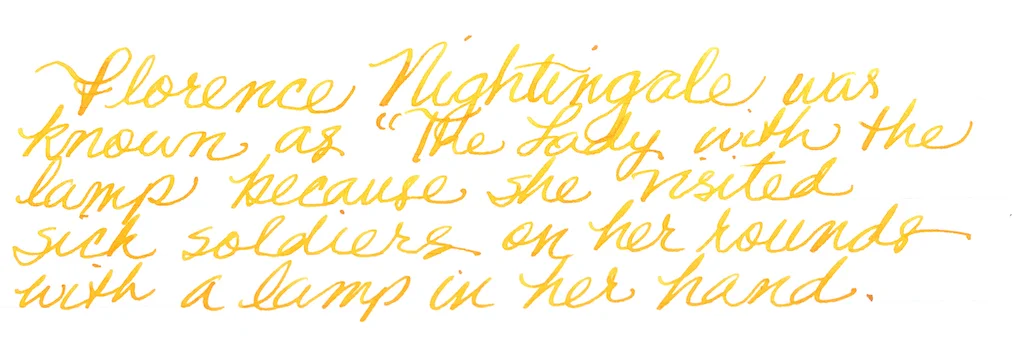 Florence Nightingale was
known as "The Lady with the
lamp because she visited
sick soldiers on her rounds
with a lamp in her hand.